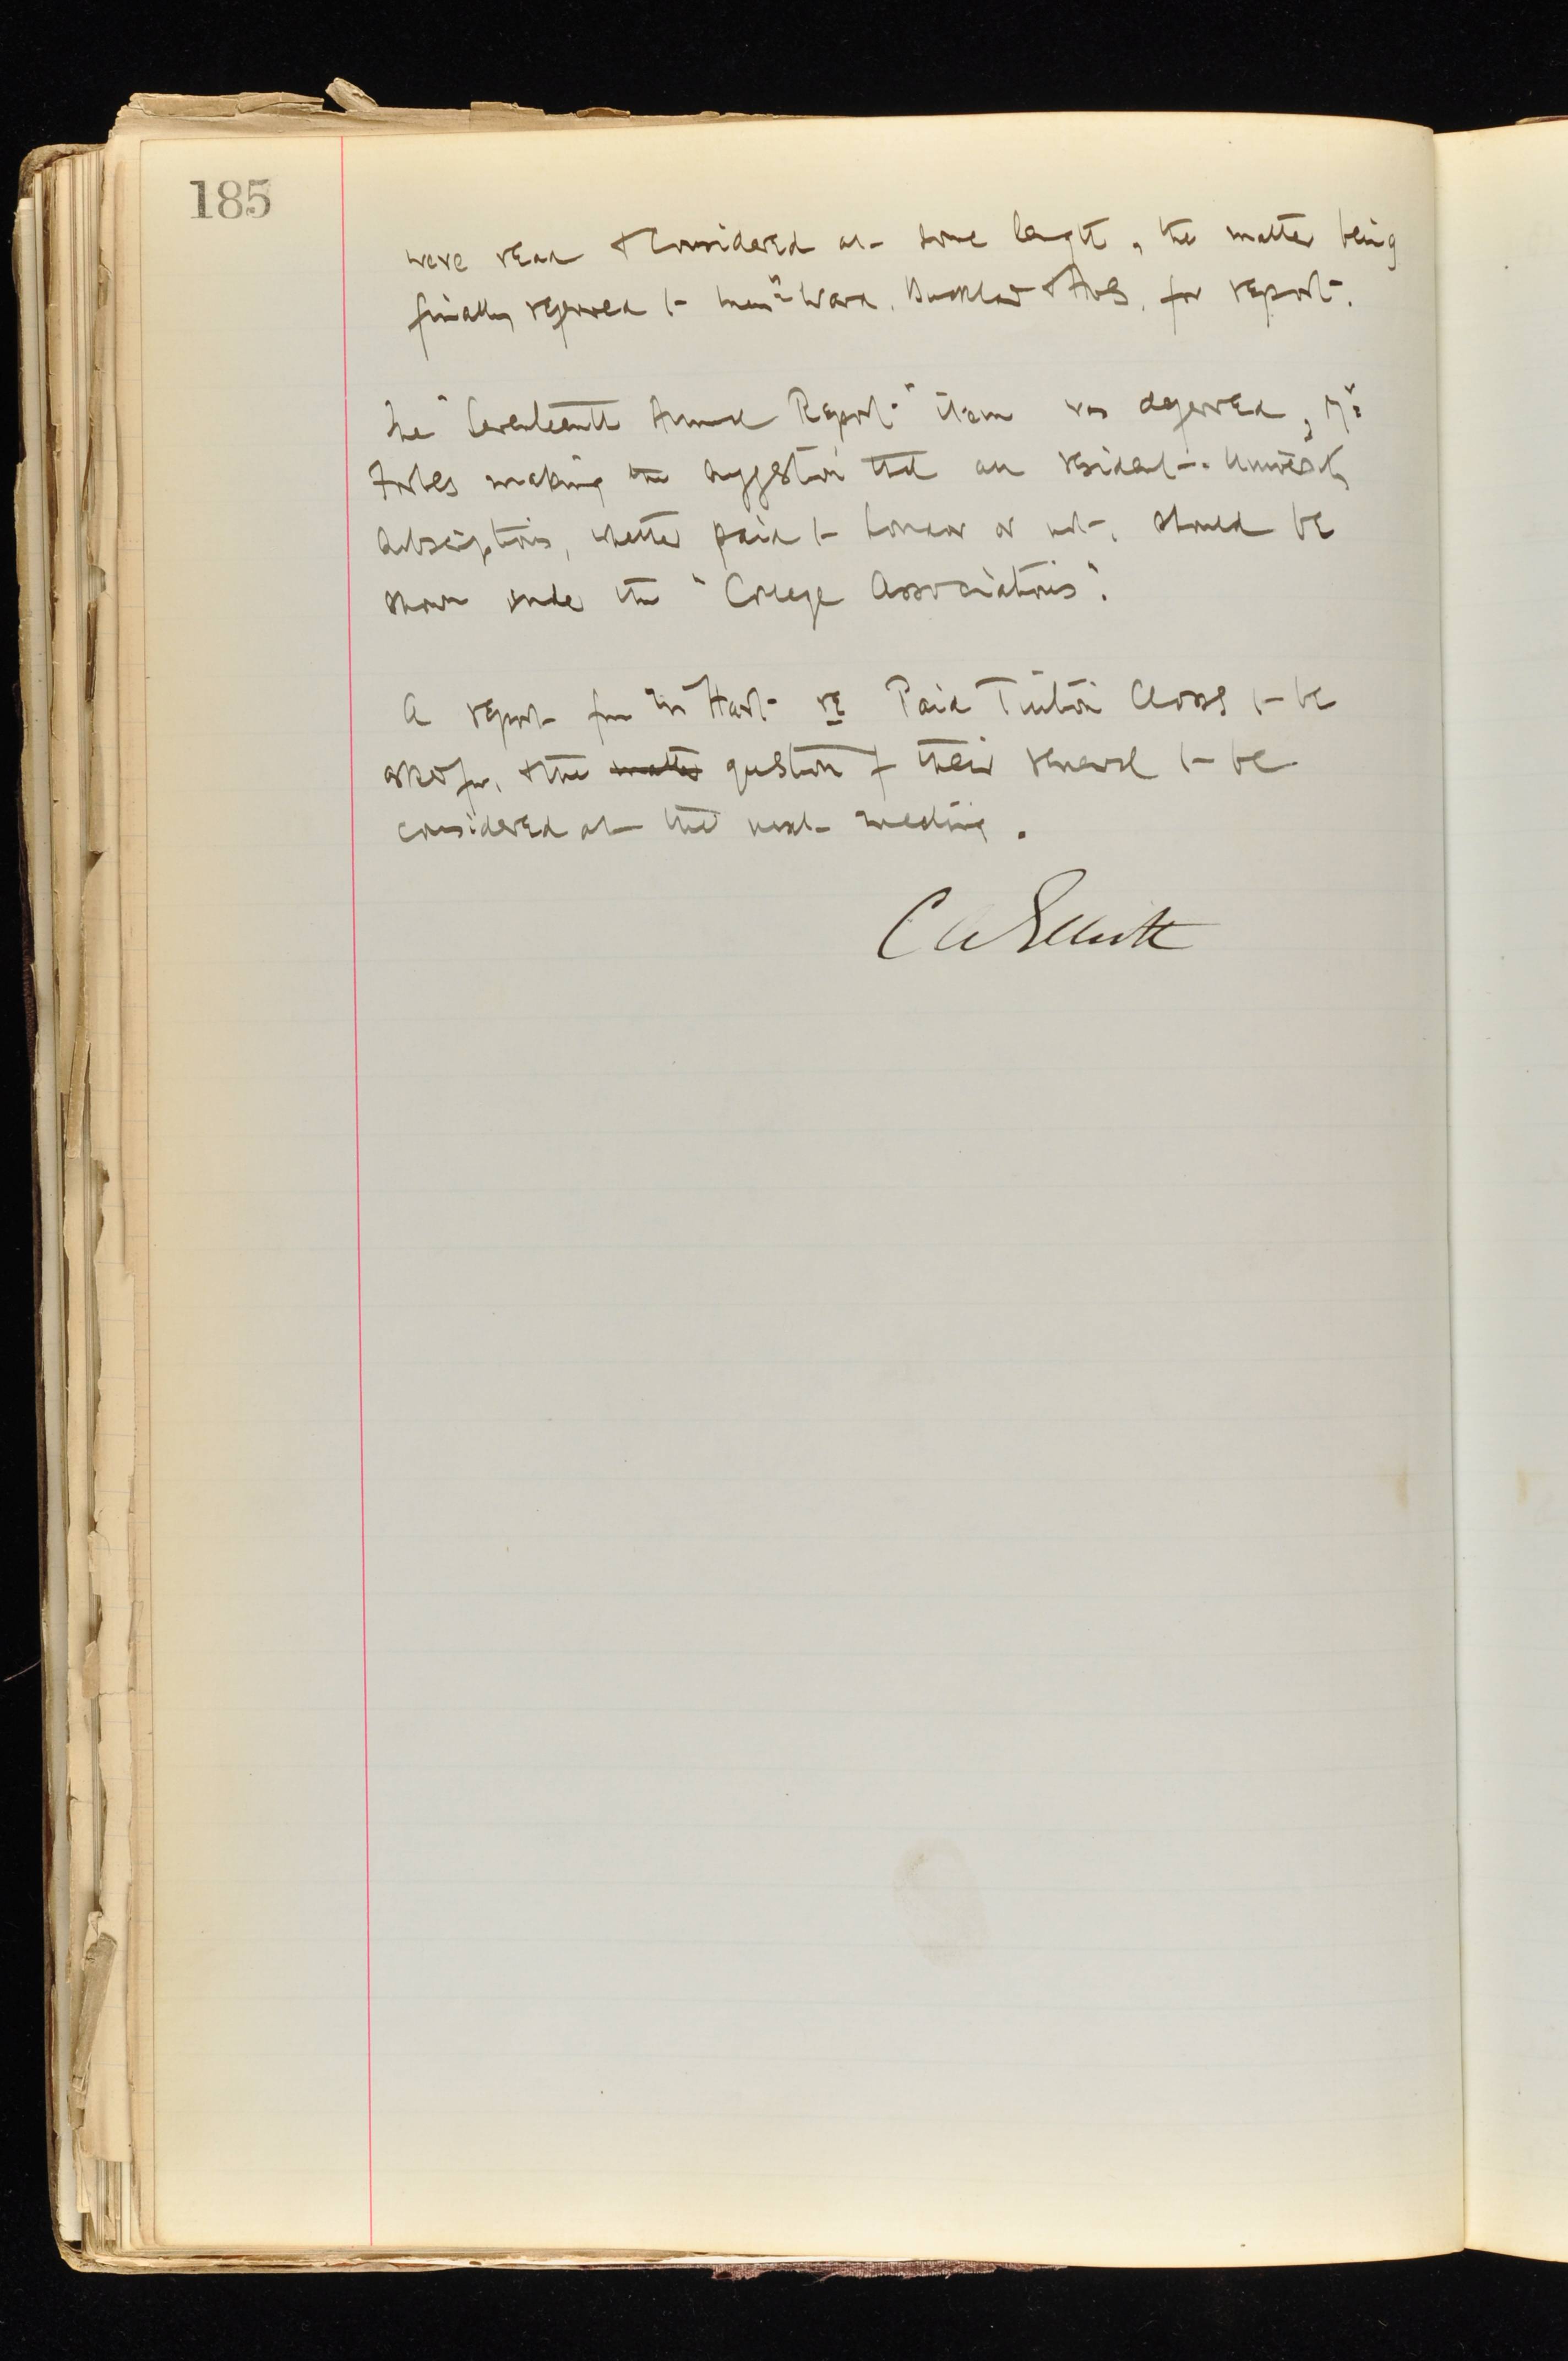 185
were read & considered at some length, the matter being
finally referred to Messrs Ward, Buckland & Forbes, for report.
The "Seventeenth Annual Report" item was deferred, Mr
Forbes making the suggestion that all resident University
subscriptions, whether paid to London or not, should be
shown under the "College Associations".
A report from Mr Hart re Paid Tuition Classes to be
asked for, & the matter question of their renewal to be
considered at the next meeting.
C W